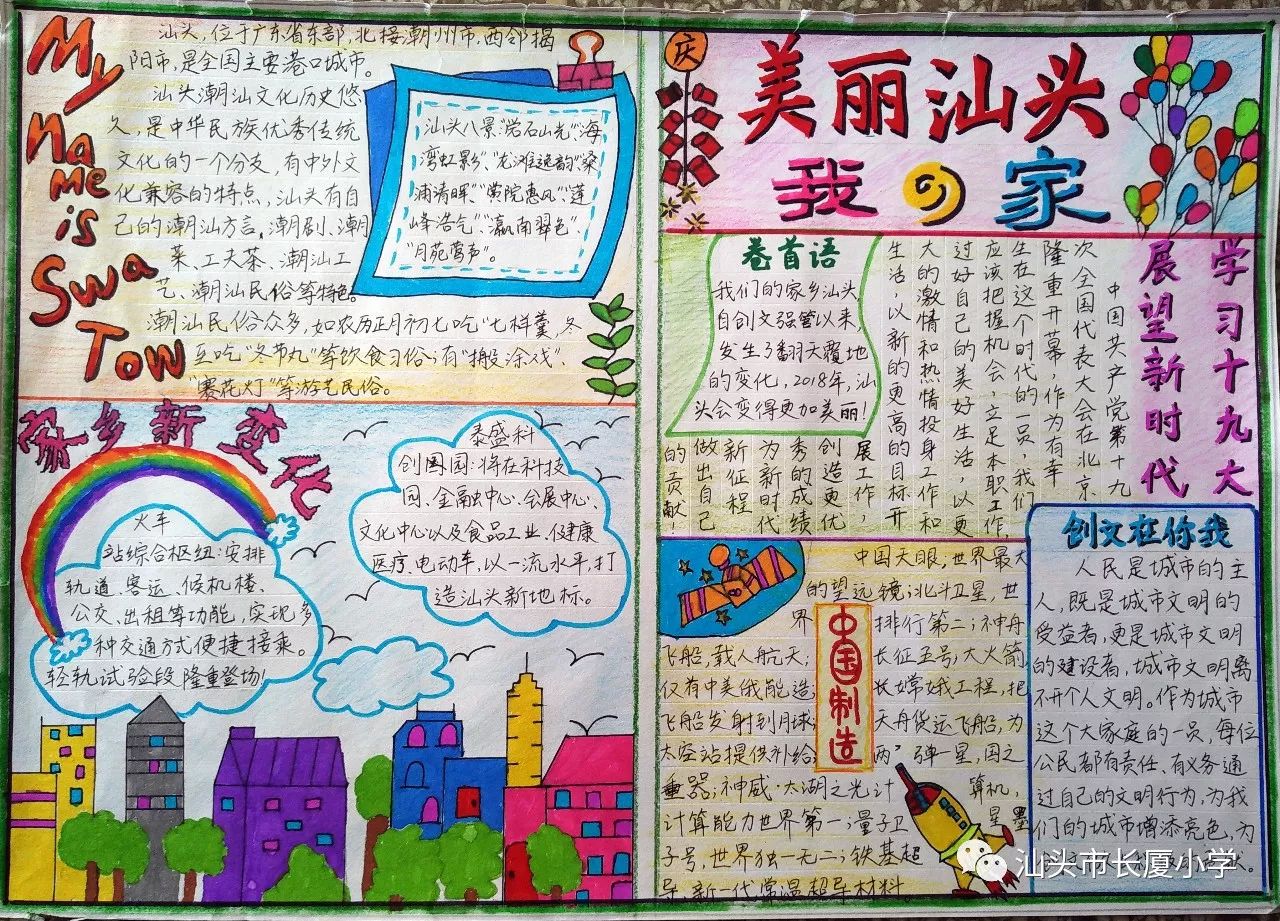 My
Name
is
Swa
Tow
汕头,位于广东省东部,北接潮州市,西邻揭
阳市,是全国主要港口城市。
汕头潮汕文化历史悠
久,是中华民族优秀传统
文化的一个分支,有中外文
化兼容的特点,汕头有自
己的潮汕方言。潮剧、潮
菜、工夫茶、潮汕工
艺、潮汕民俗等特色。
潮汕民俗众多,如农历正月初七吃"七样羹,冬
至吃"冬节丸"等饮食习俗;有"搬涂戏"、
"赛花灯"等游艺民俗。
汕头八景:"岩石山光""海
湾虹影"、"龙滩逸韵""桑
浦清晖"、"黄院惠风"、"莲
峰浩气""瀛南翠色"、
"月苑莺声"。
家乡新变化
火车
站综合枢纽:安排
轨道、客运、候机楼、
公交、出租等功能,实现多
种交通方式便捷接乘。
轻轨试验段隆重登场!
泰盛科
创园园:将在科技
园、金融中心、会展中心、
文化中心以及食品工业、健康
医疗、电动车,以一流水平,打
造汕头新地标。
庆
美丽汕头
我の家
卷首语
我们的家乡汕头,
自创文强管以来,
发生了翻天覆地
的变化,2018年,汕
头会变得更加美丽!
学习十九大
展望新时代
中国共产党第十九
次全国代表大会在北京
隆重开幕,作为有幸
生在这个时代的一员,我们
应该把握机会,立足本职工作,
过好自己的美好生活,以更
大的激情和热情投身工作和
生活,以新的更高的目标开
展工作,
创造更优
秀的成绩
为新时代
新征程
做出自己
的贡献!
中国制造
中国天眼;世界最大
的望远镜;北斗卫星,世
界排行第二;神舟
飞船,载人航天;长征五号,大火箭
仅有中美俄能造;长嫦娥工程,把
飞船发射到月球;天舟货运飞船,为
太空站提供补给;两"弹一星,国之
重器;神威·太湖之光计算机,
计算能力世界第一;量子卫星墨
子号,世界独一无二;铁基超
导,新一代常温超导材料
创文在你我
人民是城市的主
人,既是城市文明的
受益者,更是城市文明
的建设者,城市文明离
不开个人文明。作为城市
这个大家庭的一员,每位
公民都有责任、有义务通
过自己的文明行为,为我
们的城市增添亮色,为
汕头市长厦小学